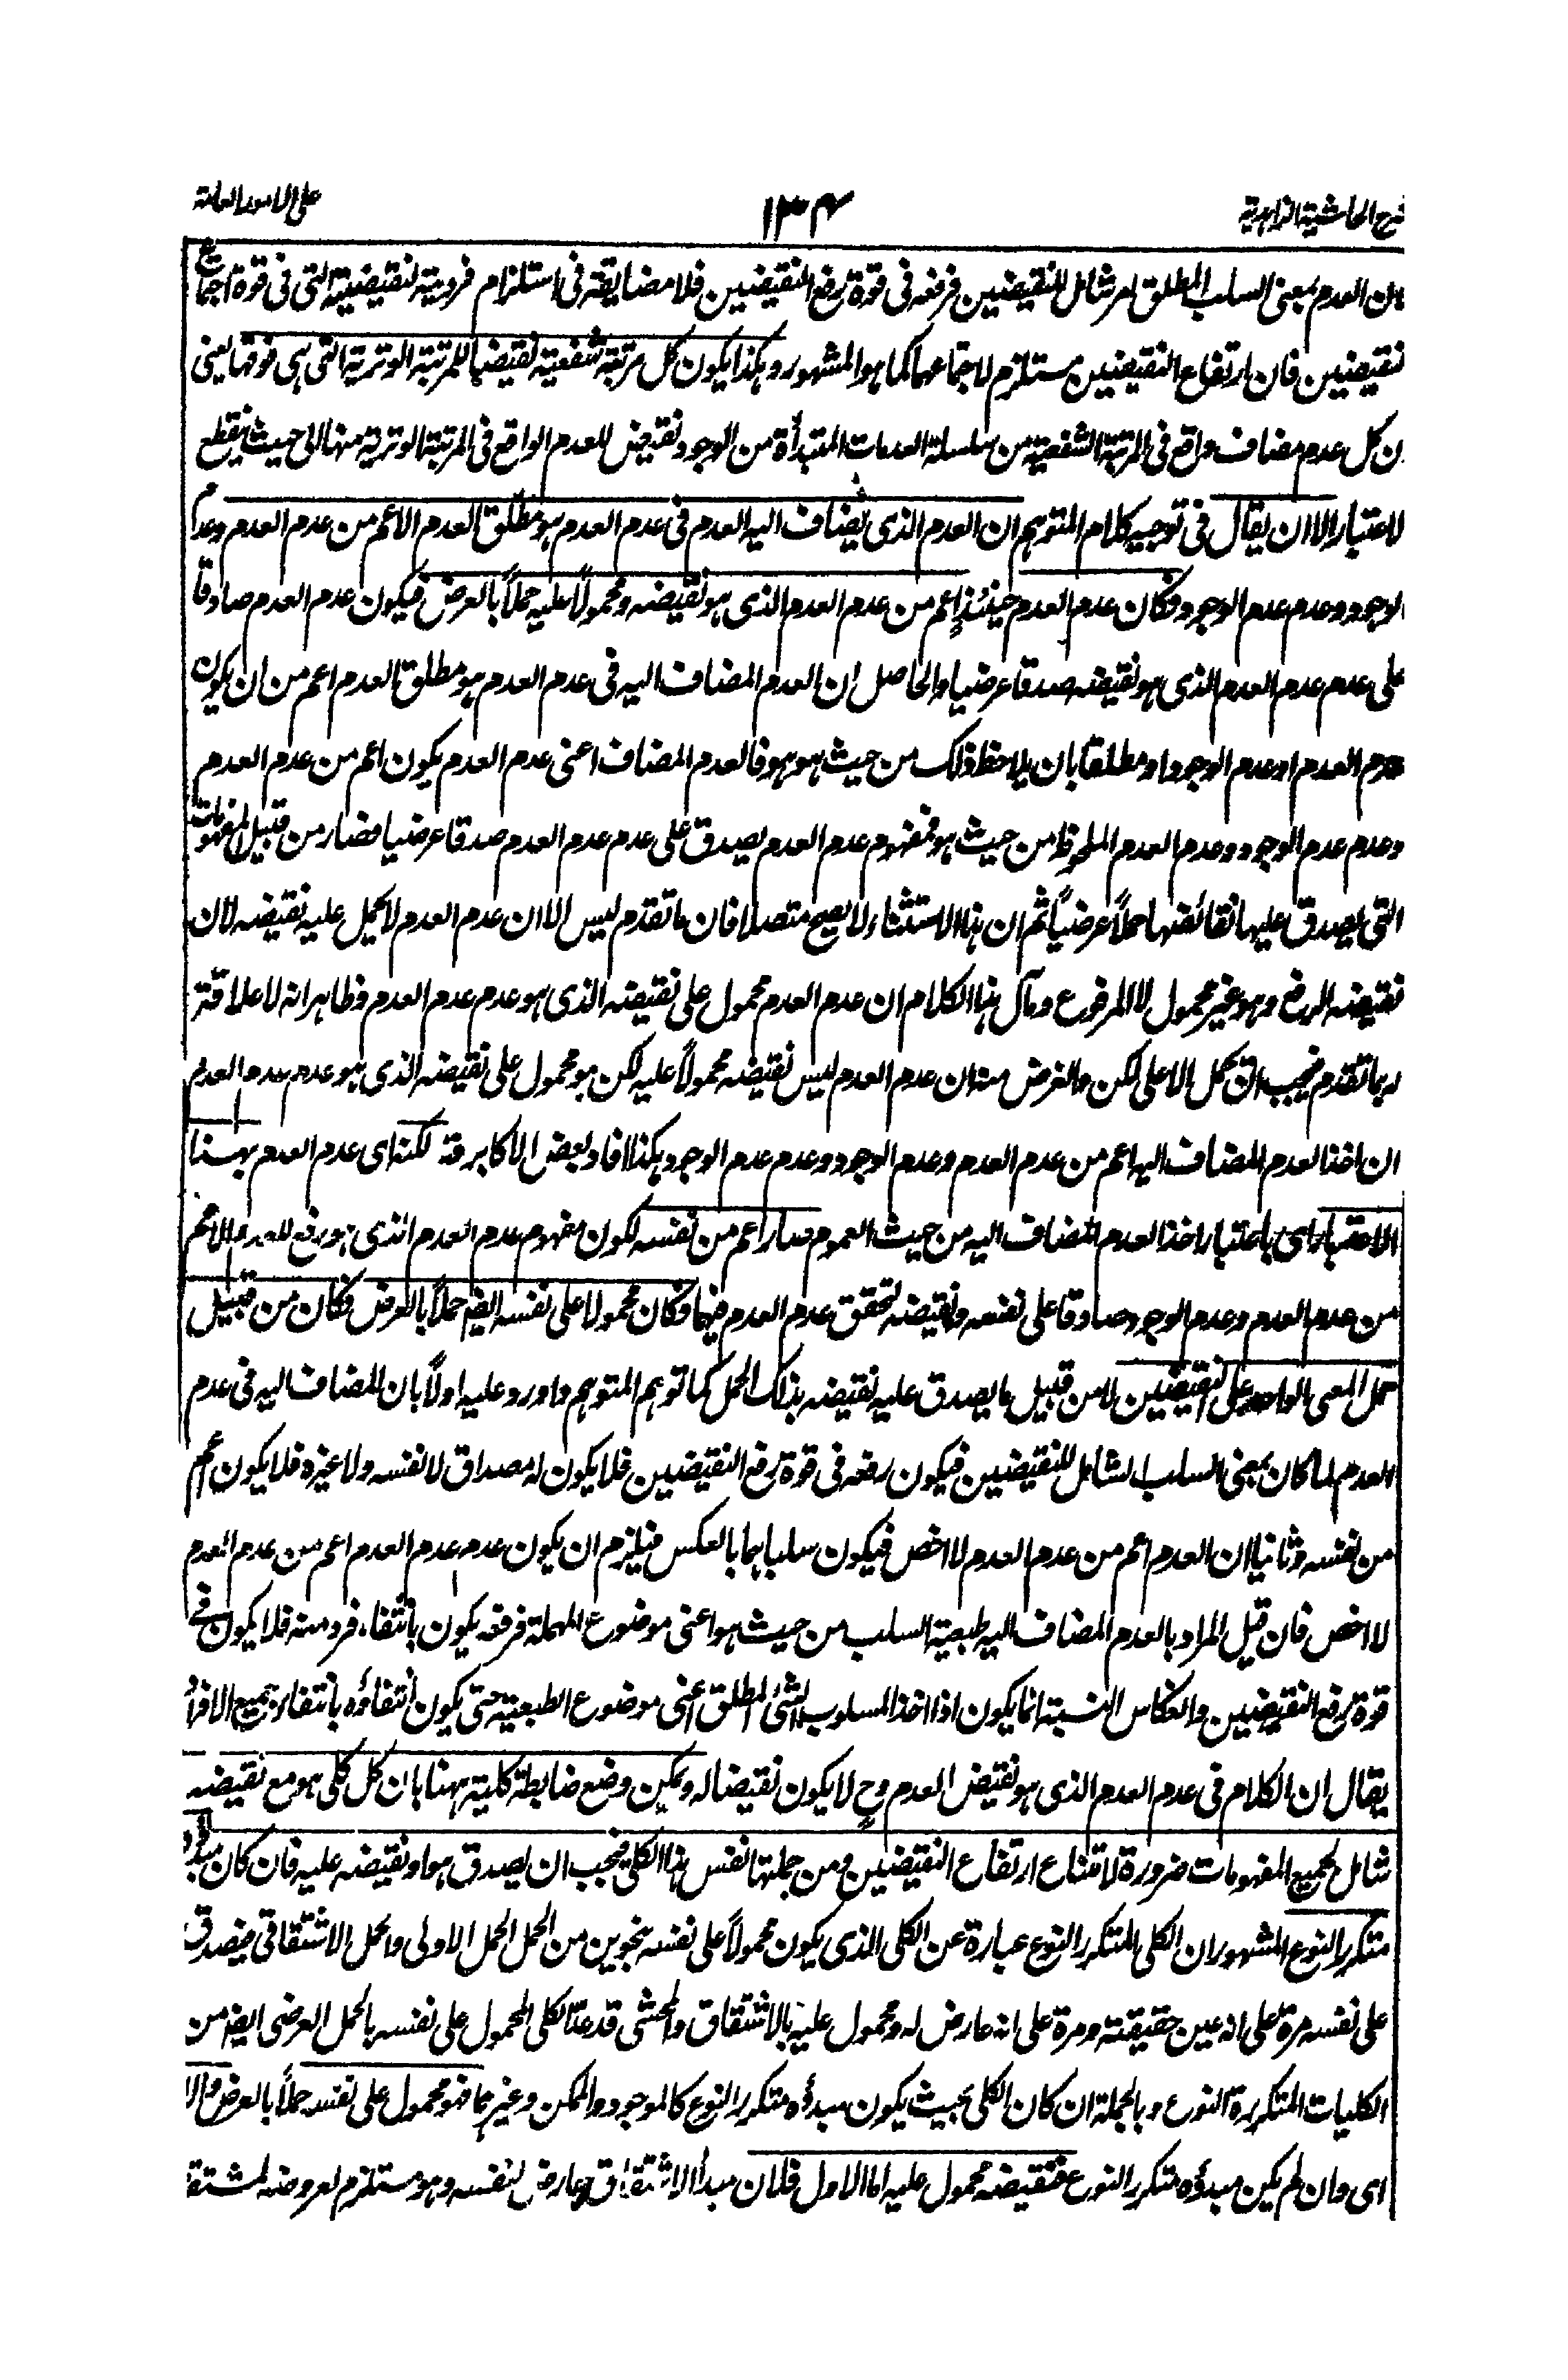 شرح الحاشية الزاهدية
١٣٤
على الامور العامة
لان العدم بمعنى السلب المطلق امر شامل للنقيضين فرفعه فى قوة رفع النقيضين فلا مضايقة فى استلزام فرديته لنقيضيته التى فى قوة اجتماع
نقيضين فان ارتفاع النقيضين مستلزم لاجتماعهما كما هو المشهور وهكذا يكون كل مرتبة شفعية نقيضا للمرتبة الوترية التى هى فوقها يعنى
ان كل عدم مضاف واقع فى المرتبة الشفعية من سلسلة العدمات المبتدأة من الوجود نقيض للعدم الواقع فى المرتبة الوترية منها الى حيث ينقطع
الاعتبار الا ان يقال فى توجيه كلام المتوهم ان العدم الذى يضاف اليه العدم فى عدم العدم هو مطلق العدم الاعم من عدم العدم وعدم
الوجود وعدم عدم الوجود فكان عدم العدم حينئذ اعم من عدم العدم الذى هو نقيضه ومحمولاً عليه حملاً بالعرض فيكون عدم العدم صادقا
على عدم عدم العدم الذى هو نقيضه صدقا عرضيا والحاصل ان العدم المضاف اليه فى عدم العدم هو مطلق العدم اعم من ان يكون
عدم العدم او عدم الوجود او مطلقا بان يلاحظ ذلك من حيث هو هو فالعدم المضاف اعنى عدم العدم يكون اعم من عدم العدم
وعدم عدم الوجود وعدم العدم الملحوظ من حيث هو فمفهوم عدم العدم يصدق على عدم عدم العدم صدقا عرضيا فصار من قبيل المفهومات
التى يصدق عليها نقائضها حملاً عرضياً ثم ان هذا الاستثناء لا يصح متصلا فان ما تقدم ليس الا ان عدم العدم لا يحمل عليه نقيضه لان
نقيضه الرفع وهو غير محمول لا المرفوع ومآل هذا الكلام ان عدم العدم محمول على نقيضه الذى هو عدم عدم العدم وظاهر انه لا علاقة
له بما تقدم فيجب ان يحمل الا على لكن والغرض منه ان عدم العدم ليس نقيضه محمولاً عليه لكن هو محمول على نقيضه الذى هو عدم عدم العدم
ان اخذ العدم المضاف اليه اعم من عدم العدم وعدم الوجود وعدم عدم الوجود هكذا افاد بعض الاكابر قد لكنه اى عدم العدم بهذا
الاعتبار اى باعتبار اخذ العدم المضاف اليه من حيث العموم صار اعم من نفسه لكون مفهوم عدم العدم الذى هو رفع للعدم الاعم
من عدم العدم وعدم الوجود صادقا على نفسه ونقيضه لتحقق عدم العدم فيهما فكان محمولا على نفسه ايضا حملاً بالعرض فكان من قبيل
حمل المعنى الواحد على النقيضين لا من قبيل ما يصدق عليه نقيضه بذلك الحمل كما توهم المتوهم واورد عليه اولاً بان المضاف اليه فى عدم
العدم لما كان بمعنى السلب الشامل للنقيضين فيكون رفعه فى قوة رفع النقيضين فلا يكون له مصداق لا نفسه ولا غيره فلا يكون اعم
من نفسه وثانيا ان العدم اعم من عدم العدم لا اخص فيكون سلباهما بالعكس فيلزم ان يكون عدم عدم العدم اعم من عدم العدم
لا اخص فان قيل المراد بالعدم المضاف اليه طبيعة السلب من حيث هو اعنى موضوع المهملة فرفعه يكون بانتفاء فرد منه فلا يكون فى
قوة رفع النقيضين وانعكاس النسبة انما يكون اذا اخذ المسلوب الشئ المطلق اعنى موضوع الطبعية حتى يكون انتفاؤه بانتفاء جميع الافراد
يقال ان الكلام فى عدم العدم الذى هو نقيض العدم وح لا يكون نقيضا له ويمكن وضع ضابطة كلية ههنا بان كل كلى هو مع نقيضه
شامل لجميع المفهومات ضرورة لامتناع ارتفاع النقيضين ومن جملتها نفس هذا الكلى فيجب ان يصدق هو او نقيضه عليه فان كان مبدؤه
متكرر النوع المشهور ان الكلى المتكرر النوع عبارة عن الكلى الذى يكون محمولاً على نفسه بنحوين من الحمل الحمل الاولى والحمل الاشتقاقى فيصدق
على نفسه مرة على انه عين حقيقته ومرة على انه عارض له ومحمول عليه بالاشتقاق والمحشى قد عدّ الكلى المحمول على نفسه بالحمل العرضى ايضا من
الكليات المتكررة النوع وبالجملة ان كان الكلى بحيث يكون مبدؤه متكرر النوع كالموجود والممكن وغيرهما فهو محمول على نفسه حملاً بالعرض والا
اى وان لم يكن مبدؤه متكرر النوع فنقيضه محمول عليه اما الاول فلان مبدأ الاشتقاق عارض لنفسه وهو مستلزم لعروضه لمشتقه